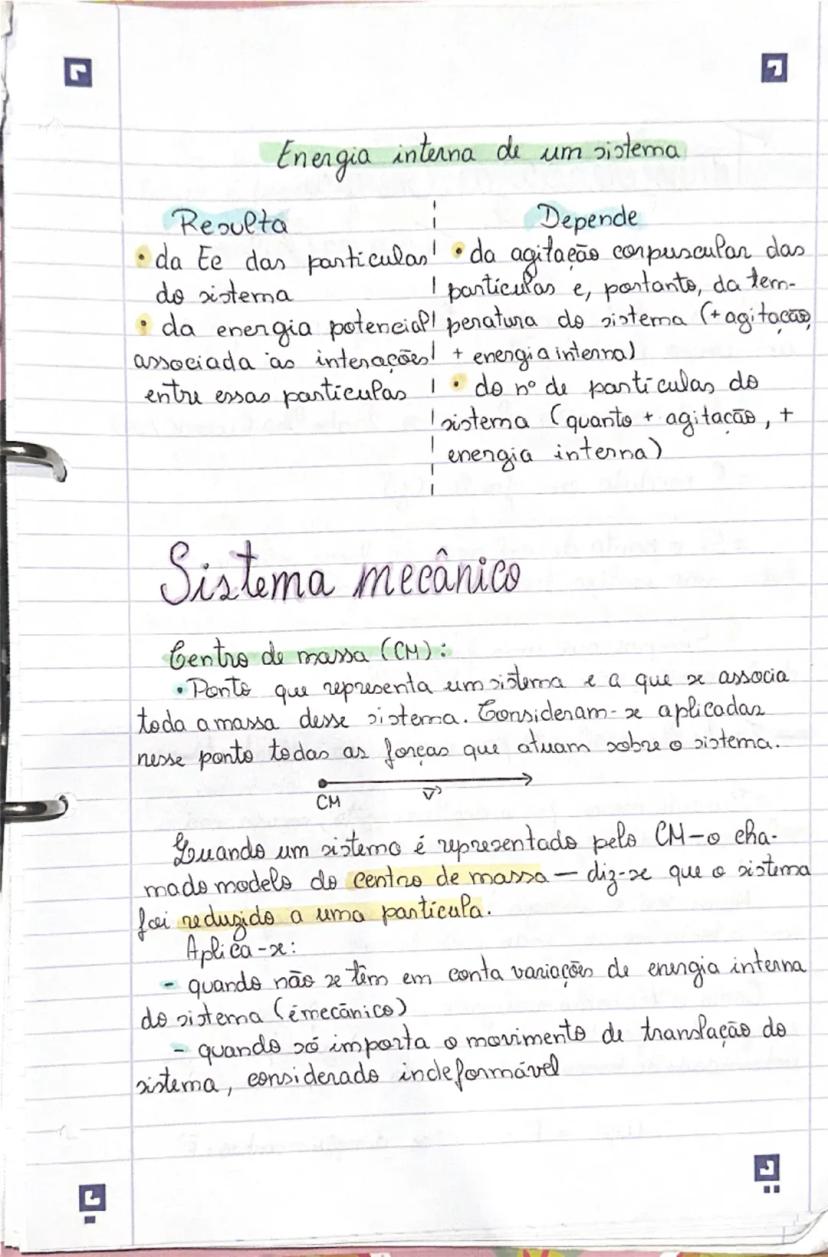 Energia interna de um sistema
Resulta
• da Ec das particulas
do sistema
• da energia potencial
associada às interações
entre essas particulas
Depende
• da agitação corpuscular das
particulas e, portanto, da tem-
peratura do sistema (+ agitação,
+ energia interna)
• do nº de particulas do
sistema (quanto + agitação, +
energia interna)
Sistema mecânico
Centro de massa (CM):
• Ponto que representa um sistema e a que se associa
toda a massa desse sistema. Consideram-se aplicadas
nesse ponto todas as forças que atuam sobre o sistema.
CM
v⃗
Quando um sistema é representado pelo CM - o cha-
mado modelo do centro de massa — diz-se que o sistema
foi reduzido a uma particula.
Aplica-se:
- quando não se têm em conta variações de energia interna
do sistema (é mecânico)
- quando só importa o movimento de translação do
sistema, considerado indeformável